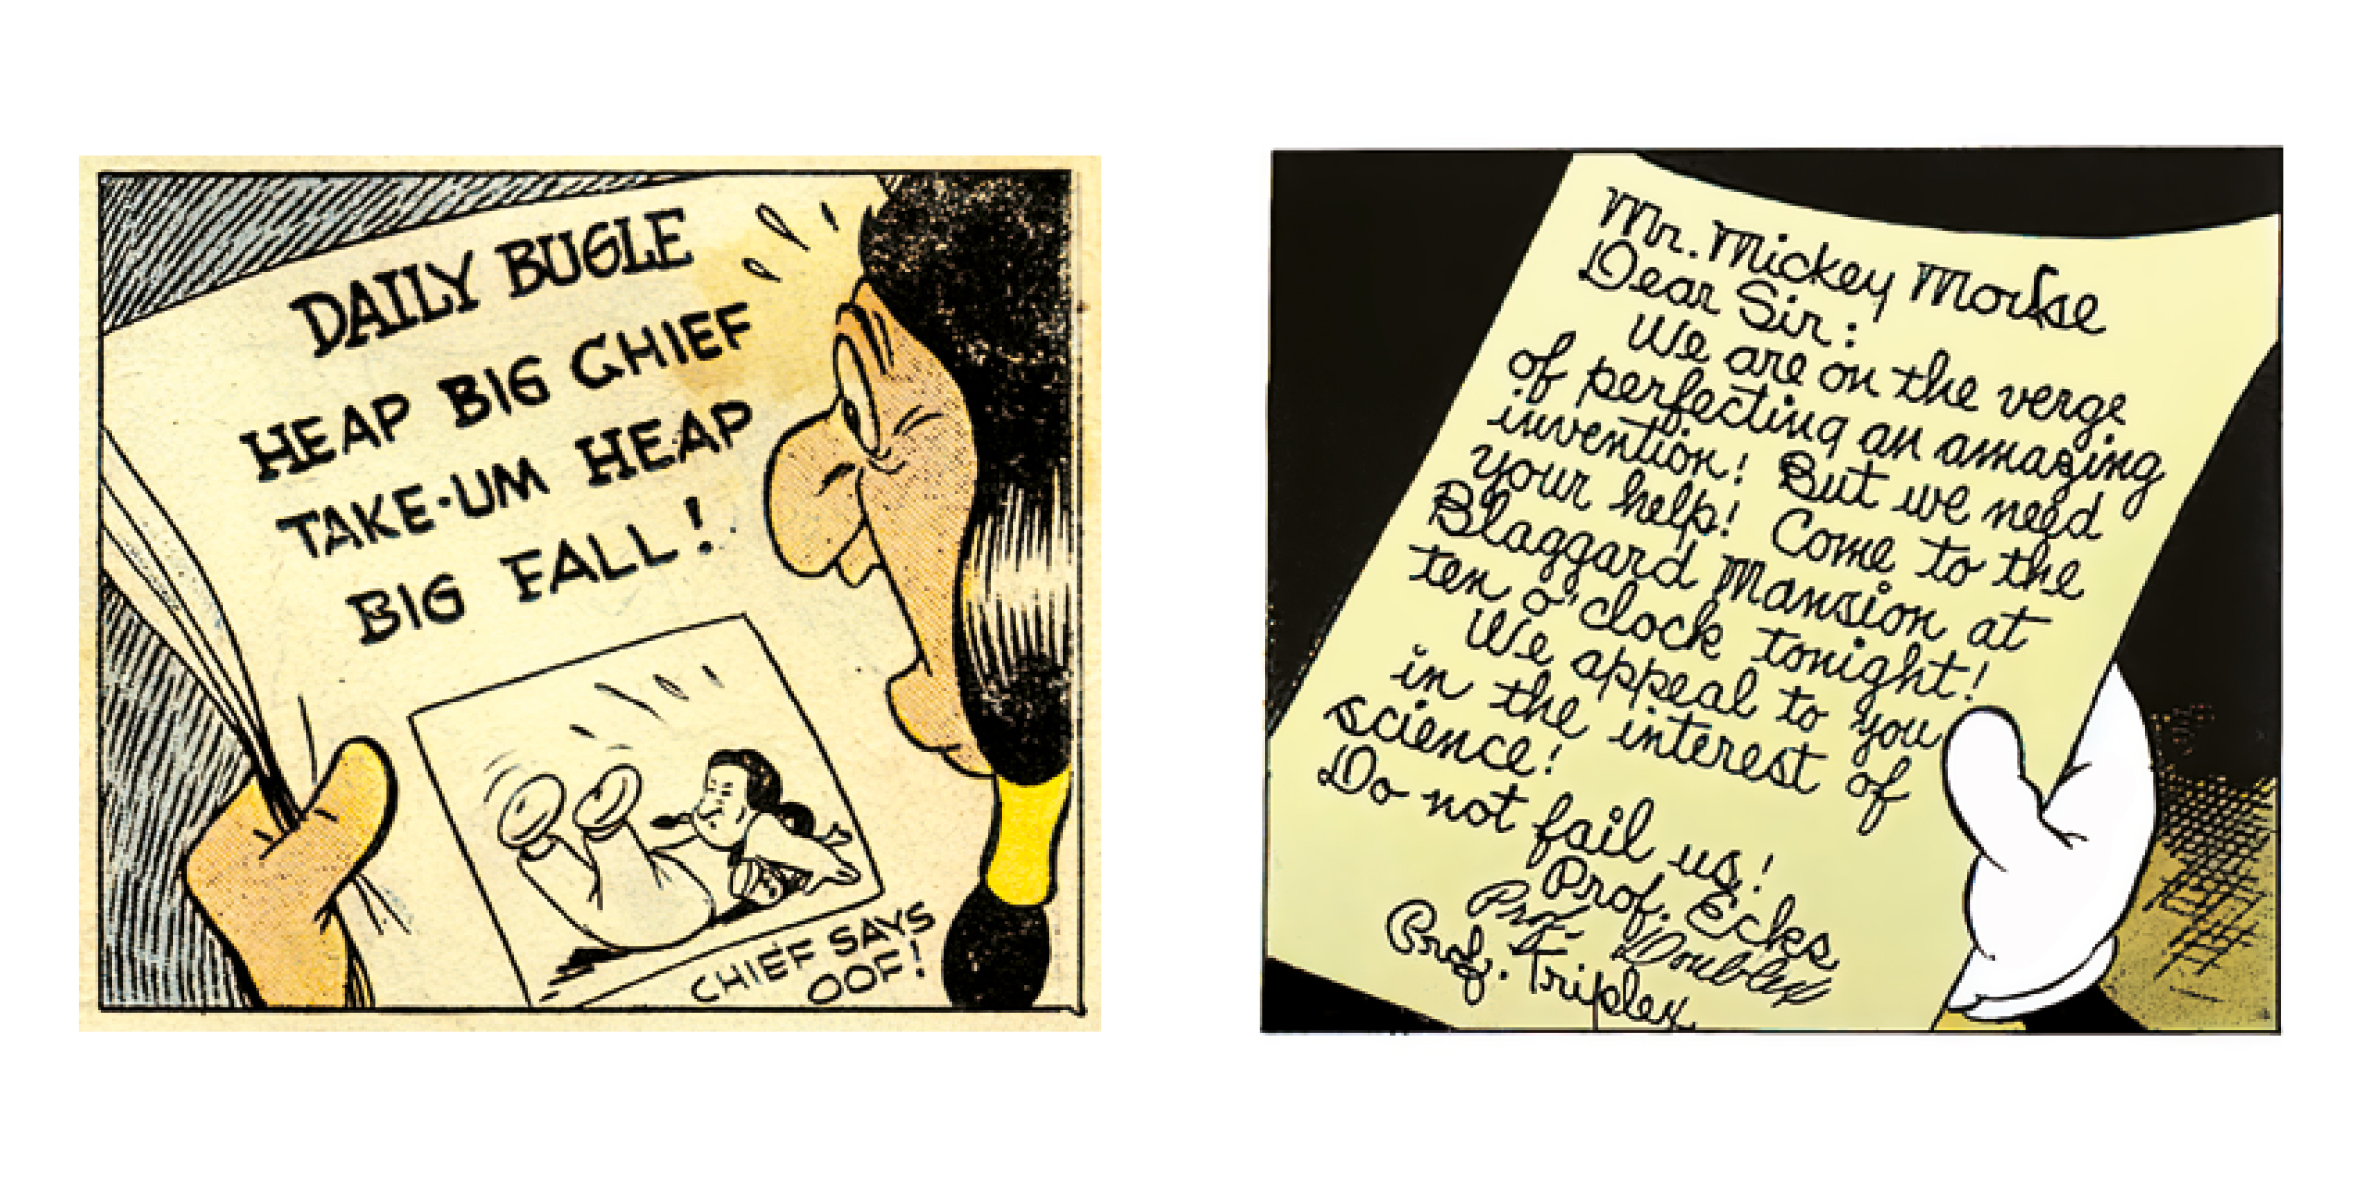 DAILY BUGLE
HEAP BIG CHIEF
TAKE-UM HEAP
BIG FALL!
CHIEF SAYS
OOF!
Mr. Mickey Mouse
Dear Sir:
We are on the verge
of perfecting an amazing
invention! But we need
your help! Come to the
Blaggard Mansion at
ten o'clock tonight!
We appeal to you
in the interest of
science!
Do not fail us!
Prof. Ecks
Prof. Doublex
Prof. Triplex